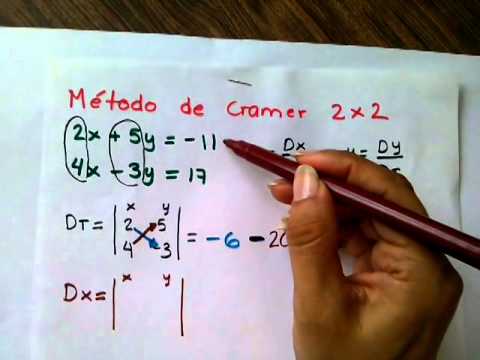 Método de Cramer 2x2
2x + 5y = -11 = Dx y = Dy
4x - 3y = 17
x y
DT = | 2 5 | = -6 - 20
4 -3
x y
Dx = | |